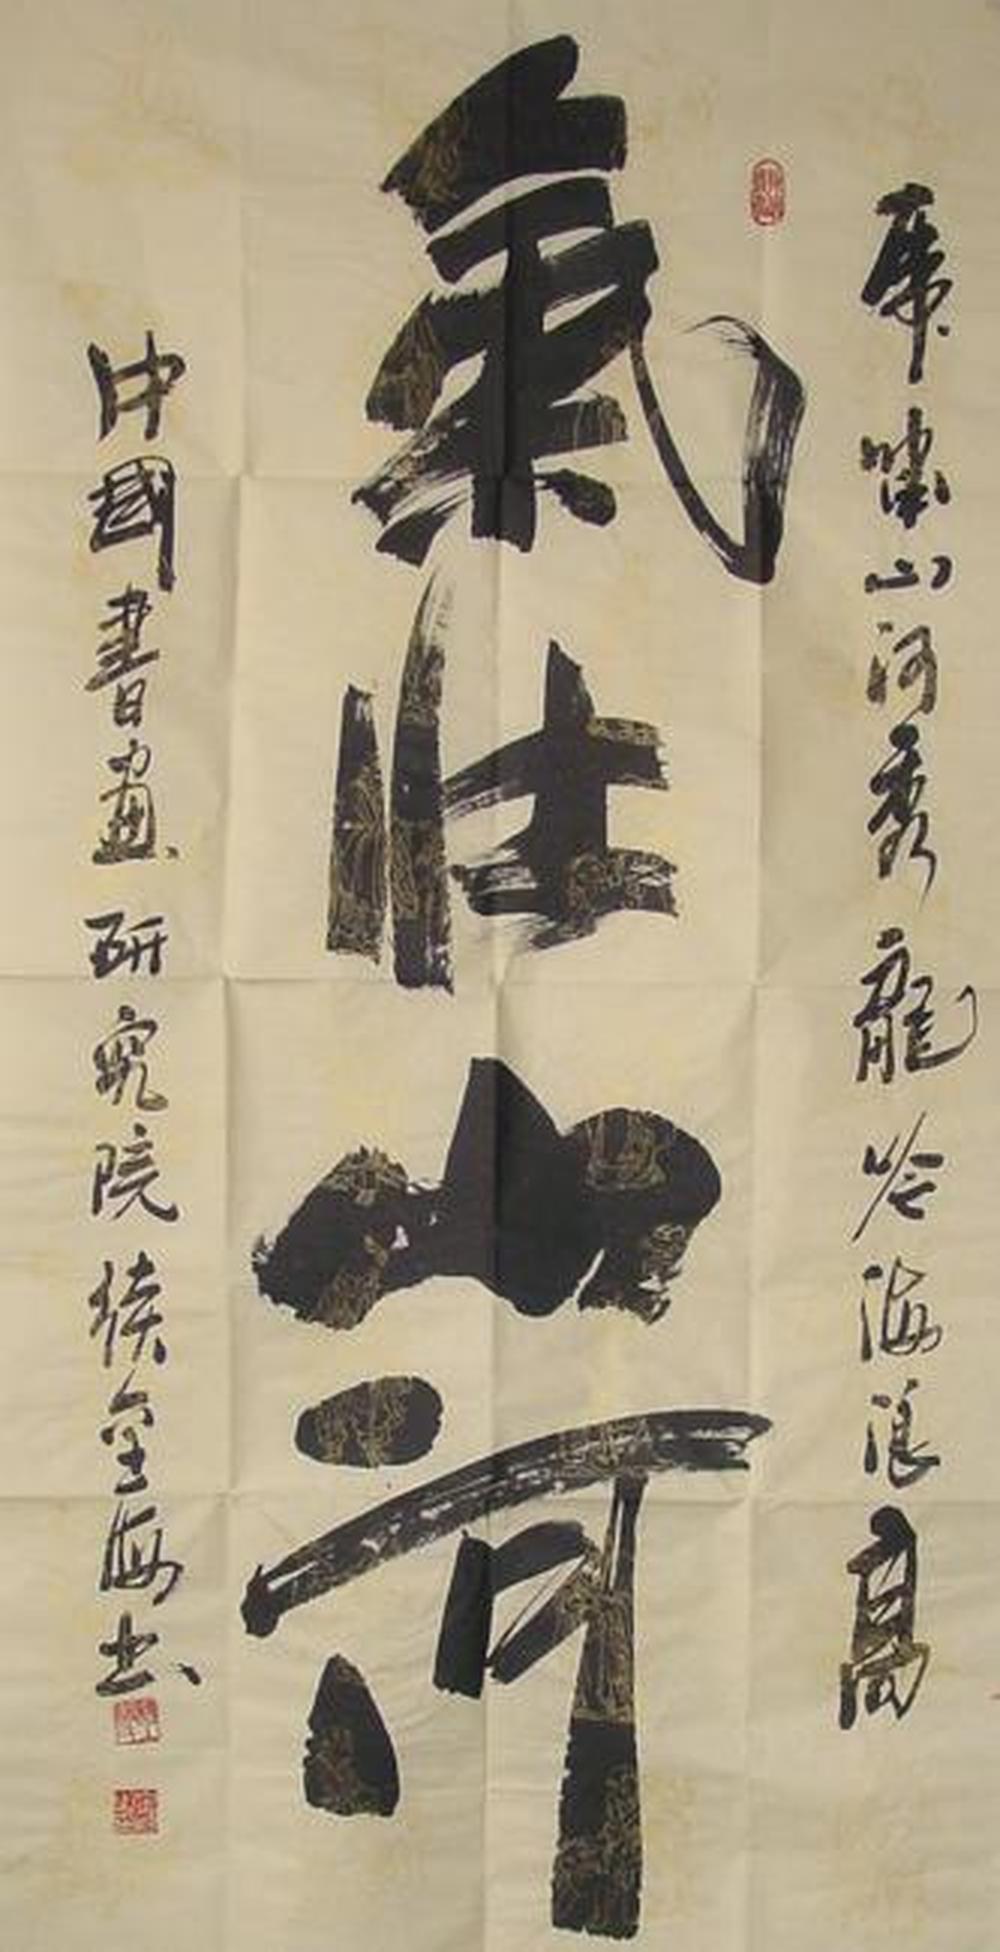 虎啸山河秀龍吟海浪高
氣壯山河
中國書畫研究院侯金海书